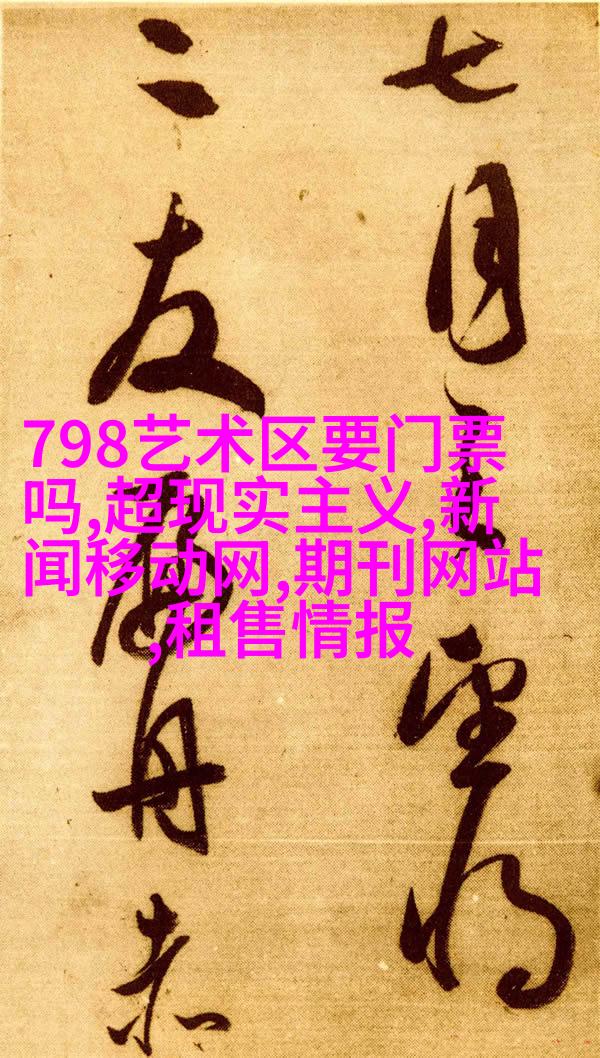 七月望將
二友舟赤
798艺术区要门票
吗,超现实主义,新
闻移动网,期刊网站
,租售情报